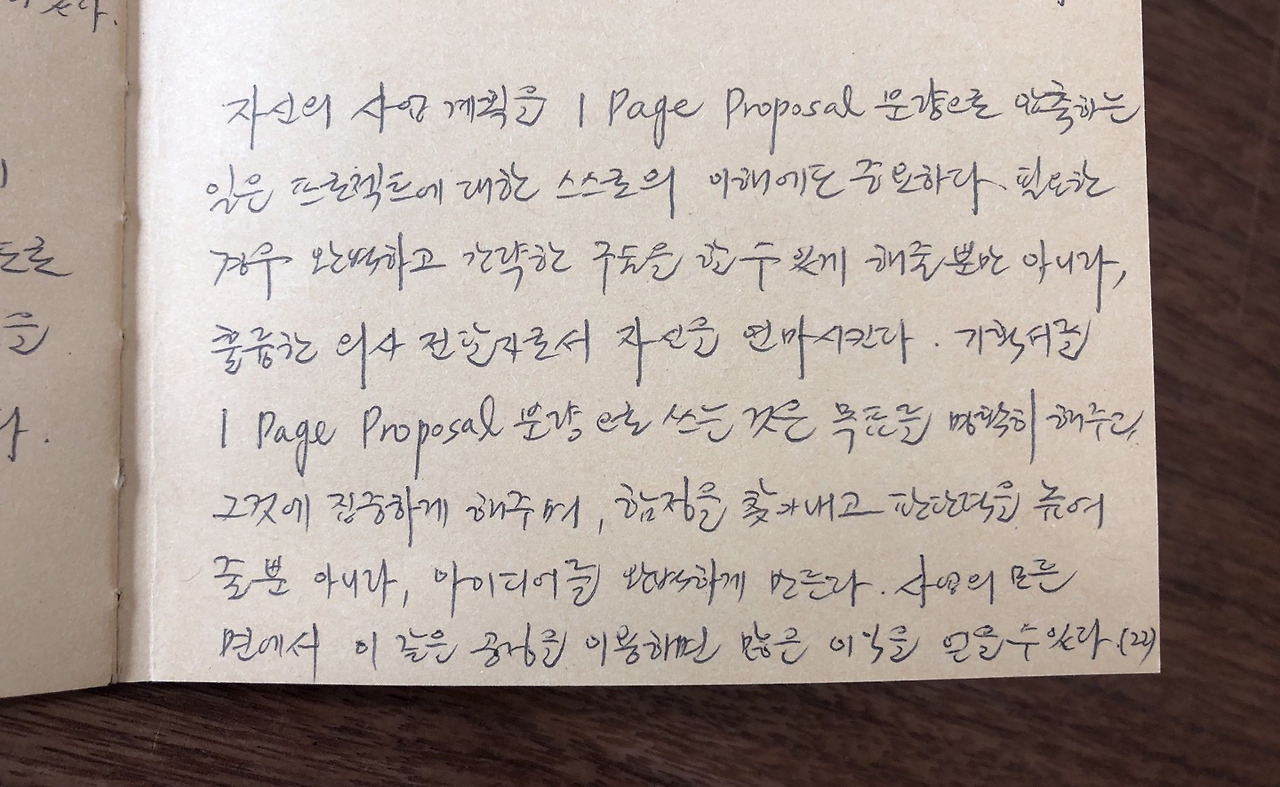 있다.
토론
를
다.
자신의 사업 계획을 1 Page Proposal 분량으로 압축하는
일은 프로젝트에 대한 스스로의 이해에도 중요하다. 필요한
경우 완벽하고 간략한 구두를 할 수 있게 해줄 뿐만 아니라,
훌륭한 의사 전달자로서 자신을 연마시킨다. 기획서를
1 Page Proposal 분량으로 쓰는 것은 목표를 명확히 해주고,
그것에 집중하게 해주며, 함정을 찾아내고 판단력을 높여
줄 뿐 아니라, 아이디어를 완벽하게 만든다. 사업의 모든
면에서 이 같은 공정를 이용하면 많은 이익을 얻을 수 있다.(22)